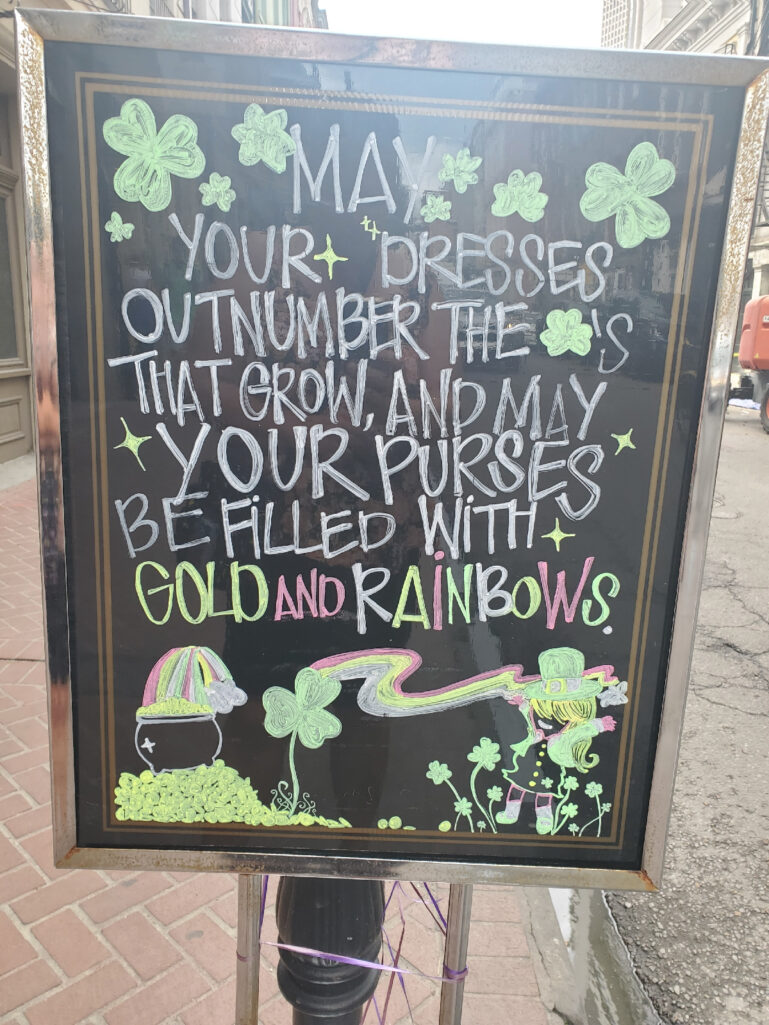 MAY
YOUR DRESSES
OUTNUMBER THE ☘'S
THAT GROW, AND MAY
YOUR PURSES
BE FILLED WITH
GOLD AND RAINBOWS.